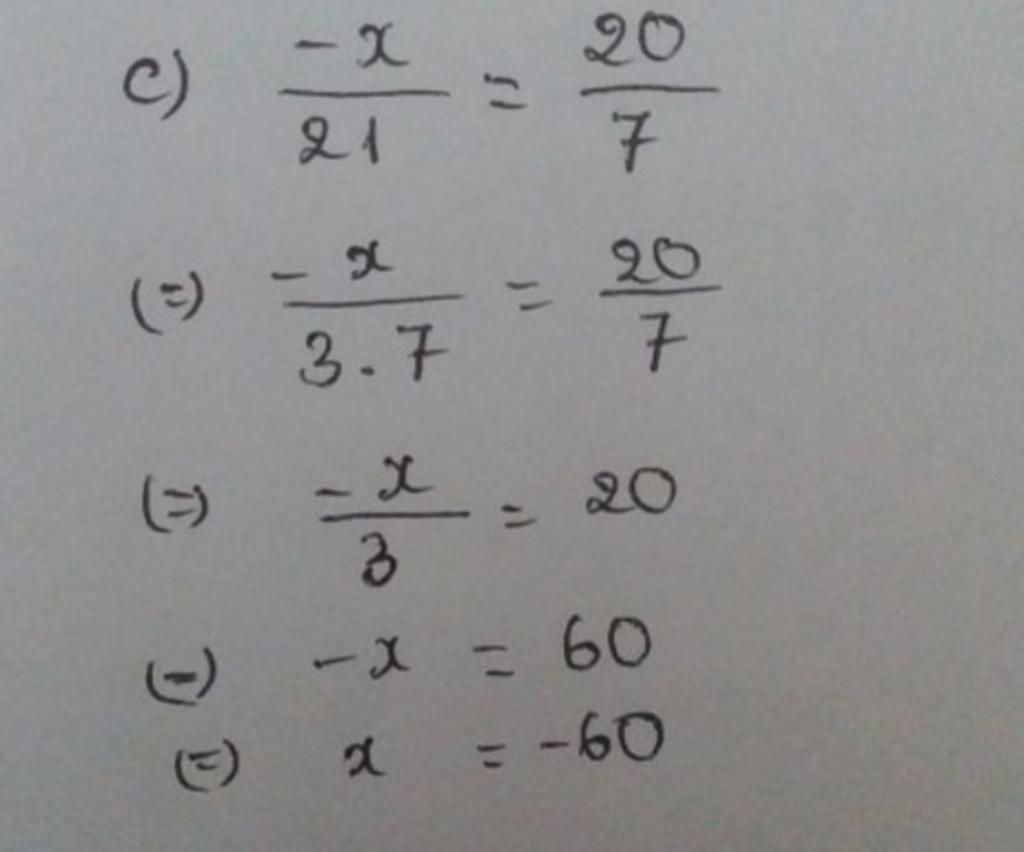 c) -x/21 = 20/7
(=) -x/3.7 = 20/7
(=) -x/3 = 20
(=) -x = 60
(=) x = -60